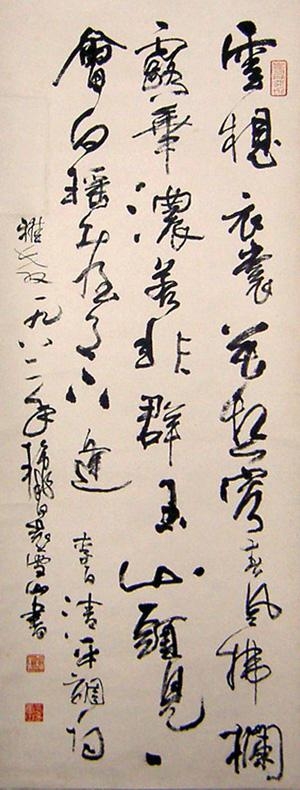 雲想衣裳花想容春风拂欄
露華濃若非群玉山頭見
會向瑤臺月下逢
李白清平調
一九八二年 雪山書